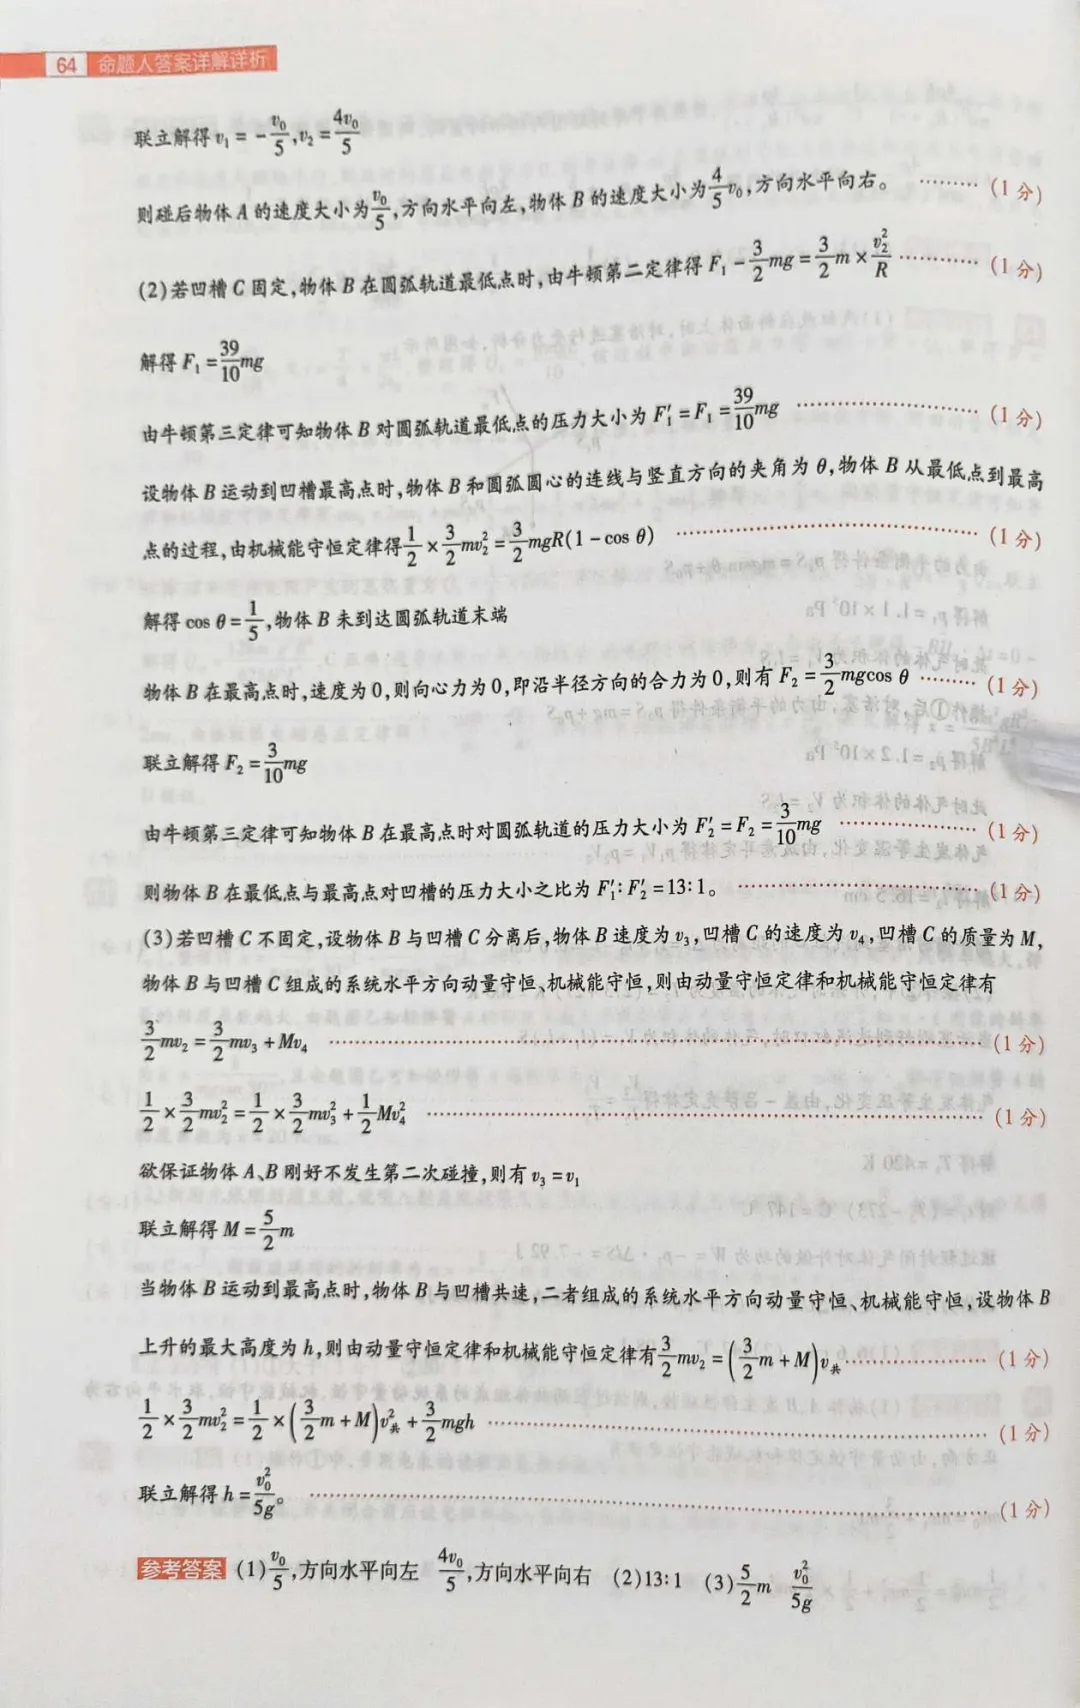 64 命题人答案详解详析
联立解得 v₁ = -v₀/5, v₂ = 4v₀/5
则碰后物体 A 的速度大小为 v₀/5, 方向水平向左, 物体 B 的速度大小为 4/5 v₀, 方向水平向右。 ……… (1 分)
(2) 若凹槽 C 固定, 物体 B 在圆弧轨道最低点时, 由牛顿第二定律得 F₁ - 3/2 mg = 3/2 m × v₂²/R ………… (1 分)
解得 F₁ = 39/10 mg
由牛顿第三定律可知物体 B 对圆弧轨道最低点的压力大小为 F₁′ = F₁ = 39/10 mg ………………… (1 分)
设物体 B 运动到凹槽最高点时, 物体 B 和圆弧圆心的连线与竖直方向的夹角为 θ, 物体 B 从最低点到最高
点的过程, 由机械能守恒定律得 1/2 × 3/2 mv₂² = 3/2 mgR(1 - cos θ) ………………………… (1 分)
解得 cos θ = 1/5, 物体 B 未到达圆弧轨道末端
物体 B 在最高点时, 速度为 0, 则向心力为 0, 即沿半径方向的合力为 0, 则有 F₂ = 3/2 mgcos θ ……… (1 分)
联立解得 F₂ = 3/10 mg
由牛顿第三定律可知物体 B 在最高点时对圆弧轨道的压力大小为 F₂′ = F₂ = 3/10 mg ……………… (1 分)
则物体 B 在最低点与最高点对凹槽的压力大小之比为 F₁′∶F₂′ = 13∶1。 ………………………… (1 分)
(3) 若凹槽 C 不固定, 设物体 B 与凹槽 C 分离后, 物体 B 速度为 v₃, 凹槽 C 的速度为 v₄, 凹槽 C 的质量为 M,
物体 B 与凹槽 C 组成的系统水平方向动量守恒、机械能守恒, 则由动量守恒定律和机械能守恒定律有
3/2 mv₂ = 3/2 mv₃ + Mv₄ ………………………………………… (1 分)
1/2 × 3/2 mv₂² = 1/2 × 3/2 mv₃² + 1/2 Mv₄² ………………………………………… (1 分)
欲保证物体 A、B 刚好不发生第二次碰撞, 则有 v₃ = v₁
联立解得 M = 5/2 m
当物体 B 运动到最高点时, 物体 B 与凹槽共速, 二者组成的系统水平方向动量守恒、机械能守恒, 设物体 B
上升的最大高度为 h, 则由动量守恒定律和机械能守恒定律有 3/2 mv₂ = (3/2 m + M)v共 ……………… (1 分)
1/2 × 3/2 mv₂² = 1/2 × (3/2 m + M)v共² + 3/2 mgh ………………………………………… (1 分)
联立解得 h = v₀²/5g。 ………………………………………… (1 分)
参考答案 (1) v₀/5, 方向水平向左 4v₀/5, 方向水平向右 (2) 13∶1 (3) 5/2 m v₀²/5g